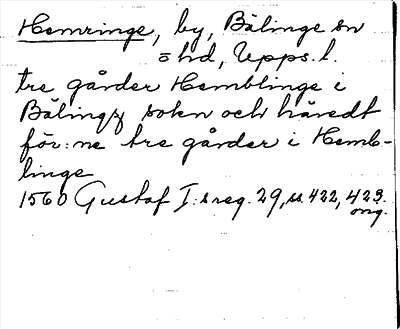 Hemringe, by, Bälinge sn
o hd, Upps. l.
tre gårder Hemblinge i
Bälingz sokn och häredt
för:ne tre gårder i Hemb-
linge
1560 Gustaf I:s reg. 29, ss. 422, 423.
orig.